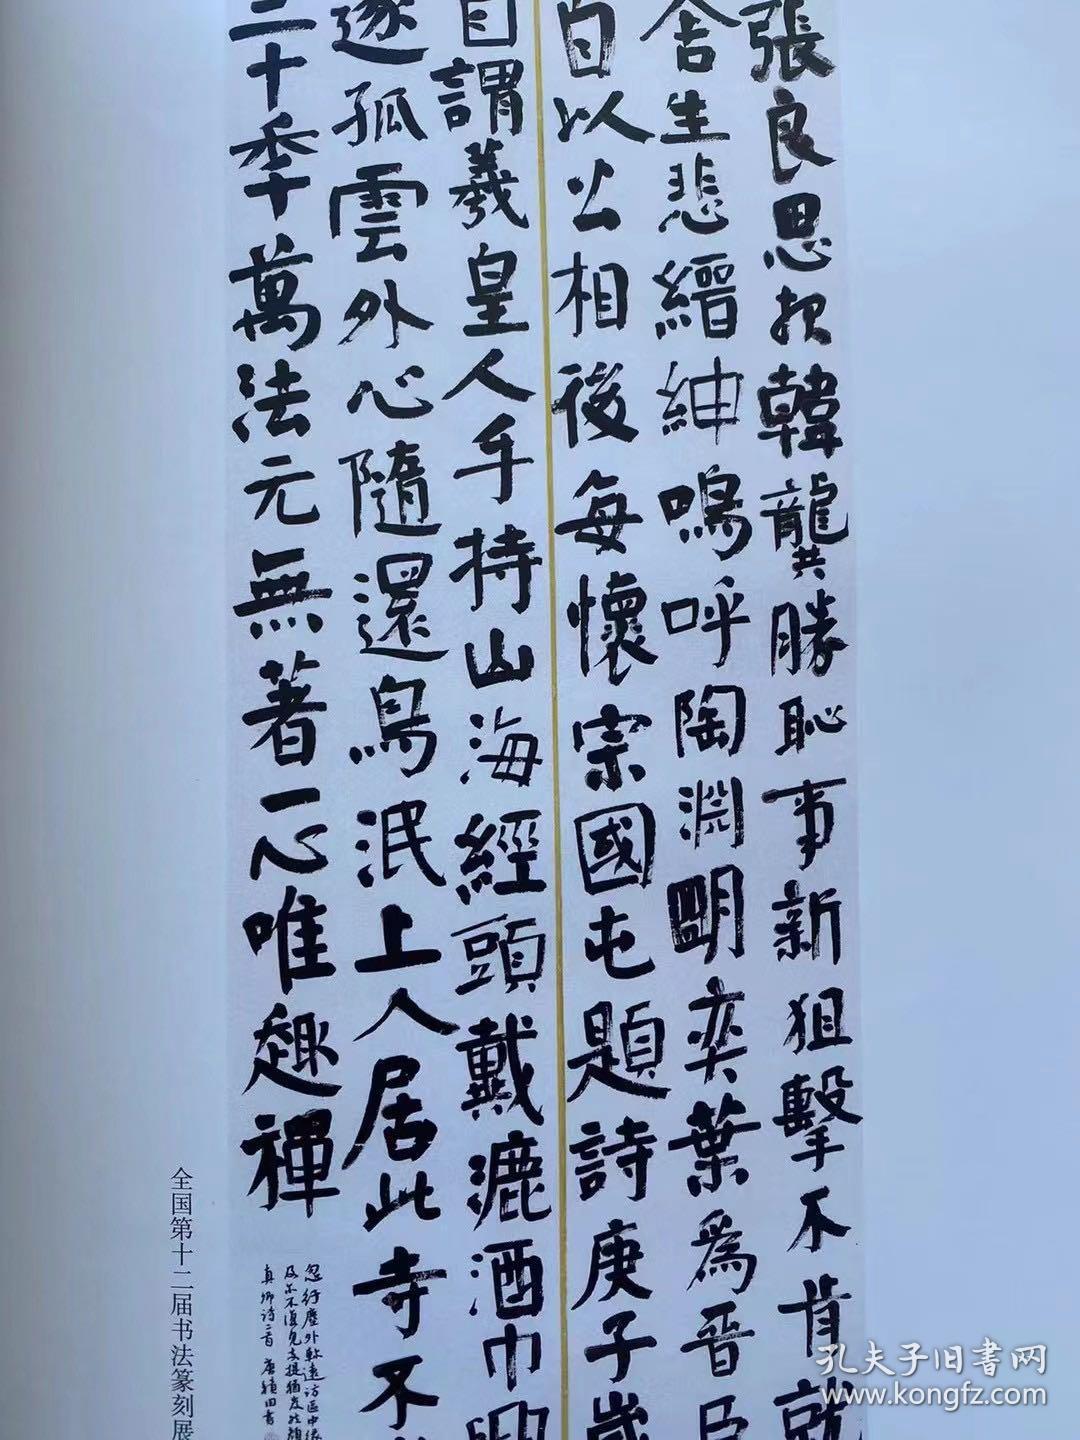 張良思報韓龔勝恥事新狙擊不肯就
舍生悲縉紳嗚呼陶淵明奕葉為晉臣
自以公相後每懷宗國屯題詩庚子歲
自謂羲皇人手持山海經頭戴漉酒巾興
逐孤雲外心隨還鳥泯上人居此寺不
二十季萬法元無著一心唯趣禪
忽行塵外軫遠訪區中緣
及尔不復見支提猶岌然顏
真卿詩二首 唐
書
全国第十二届书法篆刻展
孔夫子旧书网
www.kongfz.com